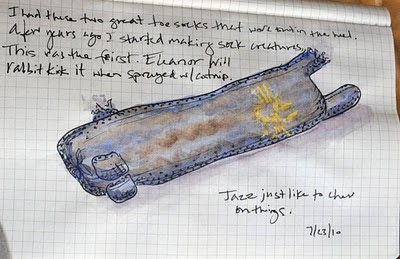 I had these two great toe socks that wore out in the heel.
A few years ago I started making sock creatures...
This was the first. Eleanor will
rabbit kick it when sprayed w/ catnip.
Jazz just like to chew
on things.
7/23/10